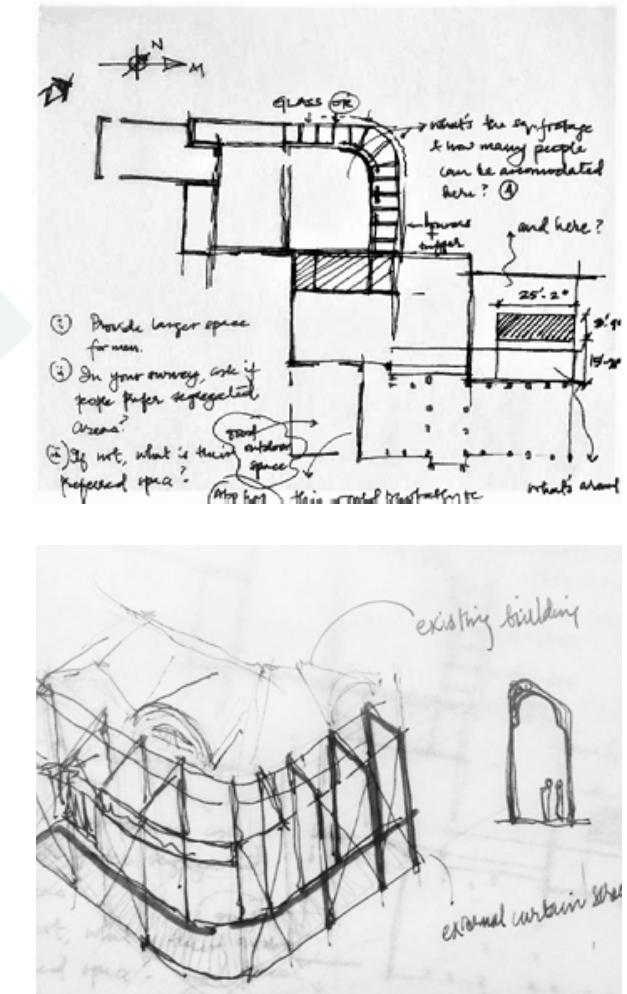 N
M
GLASS OR
what's the sq. footage
& how many people
can be accommodated
here?
and here?
25'-2"
15'-
(i) Provide larger space
for men.
(ii) In your survey, ask if
people prefer segregated
areas?
(iii) If not, what is their
preferred space?
good
outdoor
space
what's around
existing building
external curtain